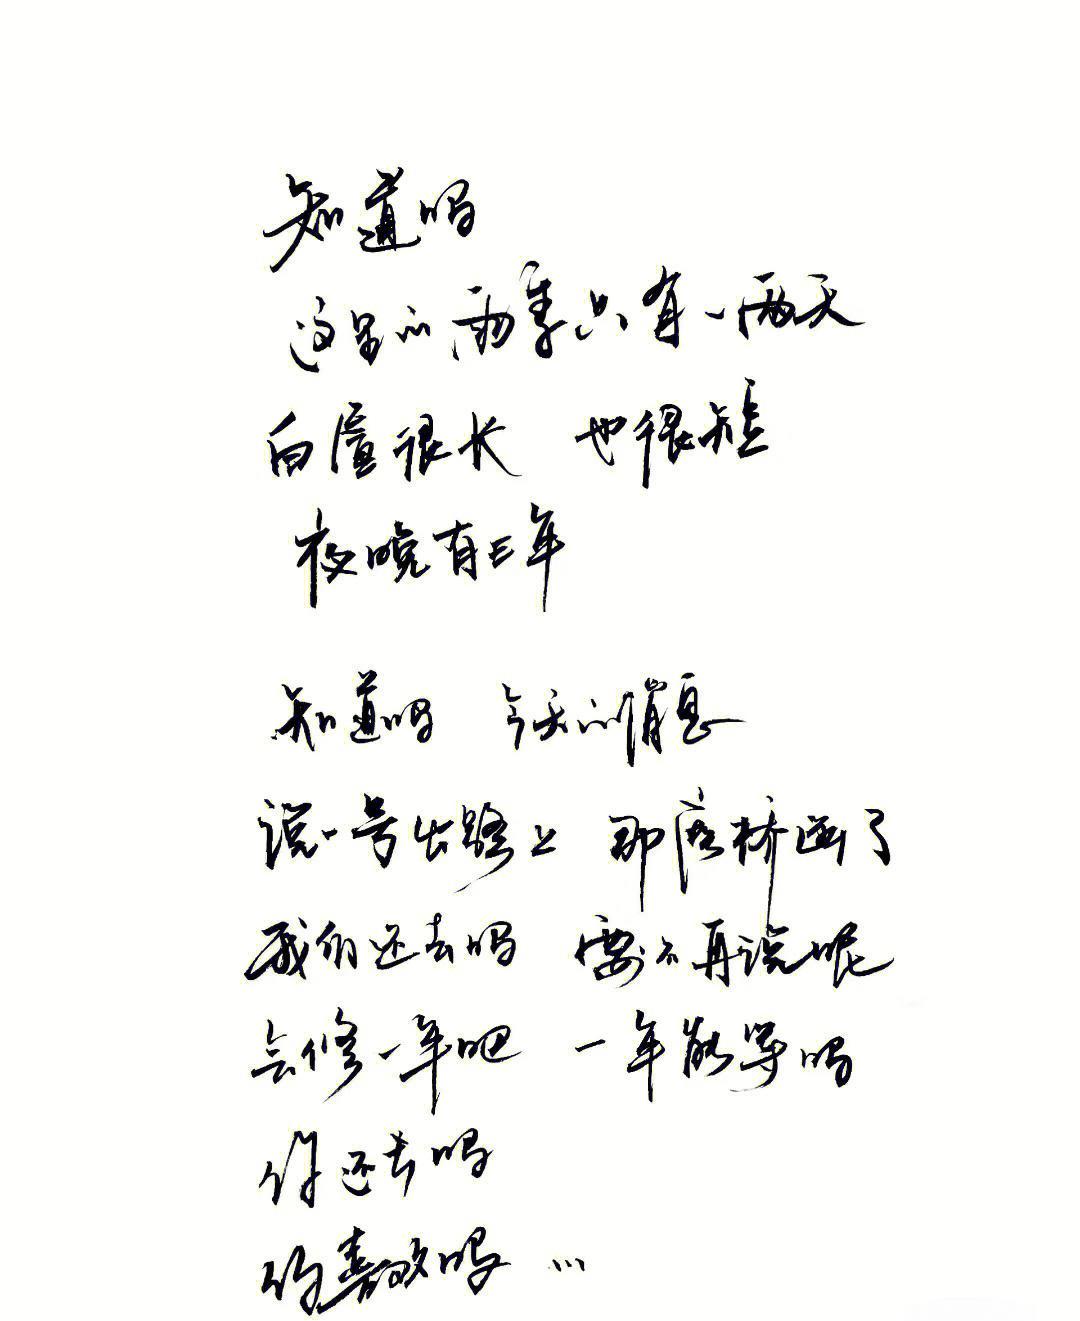 知道吗
这里的雨季只有一两天
白昼很长 也很短
夜晚有三年
知道吗 今天的消息
说一号公路上 那座桥断了
我们还去吗 要不再说呢
会修一年吧 一年能等吗
你还去吗
你喜欢吗…